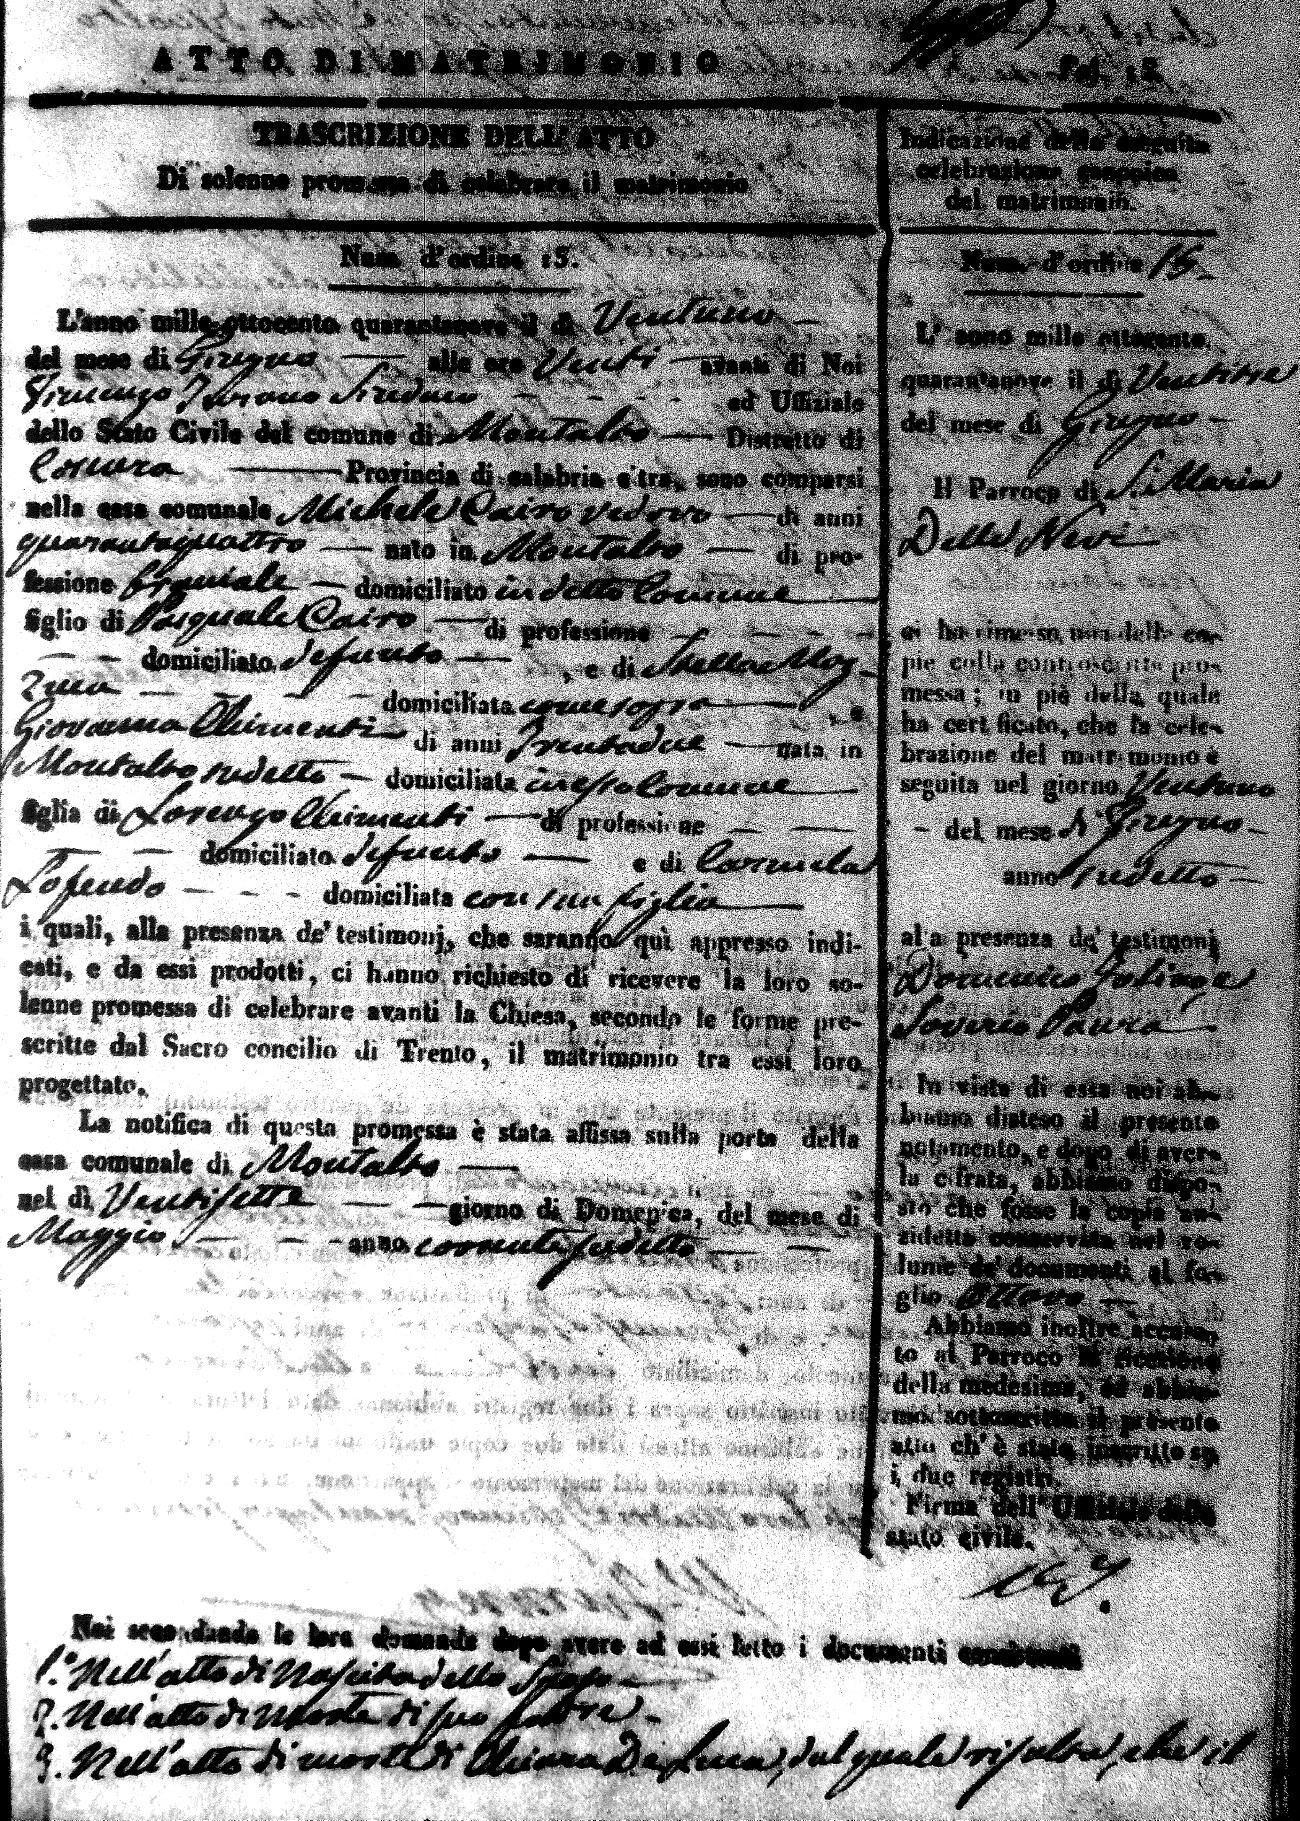 ATTO DI MATRIMONIO
Pag. 15.
TRASCRIZIONE DELL' ATTO
Di solenne promessa di celebrare il matrimonio
Num. d'ordine 15.
L'anno mille ottocento quarantanove il dì Ventuno
del mese di Giugno — alle ore Venti — avanti di Noi
ed Uffiziale
dello Stato Civile del comune di Montalto — Distretto di
Cosenza — Provincia di calabria citra, sono comparsi
nella casa comunale Michele Cairo vedovo — di anni
quarantaquattro — nato in Montalto — di pro-
fessione — domiciliato in detto Comune
figlio di Pasquale Cairo — di professione — - - -
— — domiciliato defunto — , e di Stella Maz-
zuca — - - - domiciliata come sopra — , e
Giovanna Chimenti di anni Trentadue — nata in
Montalto sudetto — domiciliata in esso Comune
figlia di Lorenzo Chimenti — di professione — —
— — domiciliato defunto — e di Carmela
Lofeudo — - - - domiciliata con sua figlia
i quali, alla presenza de' testimonj, che saranno quì appresso indi-
cati, e da essi prodotti, ci hanno richiesto di ricevere la loro so-
lenne promessa di celebrare avanti la Chiesa, secondo le forme pre-
scritte dal Sacro concilio di Trento, il matrimonio tra essi loro
progettato.
La notifica di questa promessa è stata affissa sulla porta della
casa comunale di Montalto —
nel dì Ventisette — — giorno di Domenica, del mese di
Maggio — - - anno corrente sudetto — —
Indicazione della seguita
celebrazione canonica
del matrimonio.
Num. d'ordine 15.
L' anno mille ottocento
quarantanove il dì Ventitre
del mese di Giugno —
Il Parroco di S. Maria
Delle Nevi
ci ha rimessa una delle co-
pie colla controscritta pro-
messa; in piè della quale
ha certificato, che la cele-
brazione del matrimonio è
seguita nel giorno Ventuno
- del mese di Giugno —
anno sudetto —
alla presenza de' testimonj
Domenico
Saverio
In vista di essa noi ab-
biamo disteso il presente
notamento, e dopo di aver-
la cifrata, abbiamo dispo-
sto che fosse la copia an-
zidetta conservata nel vo-
lume de' documenti al fo-
glio Ottavo —
Abbiamo inoltre accusa-
to al Parroco la ricezione
della medesima, ed abbia-
mo sottoscritto il presente
atto ch' è stato inscritto su
i due registri.
Firma dell' Uffiziale dello
stato civile.
Noi secondando le loro domande dopo avere ad essi letto i documenti consistenti
1.° Nell'atto di Nascita dello Sposo —
2. Nell'atto di Morte di suo padre —
3. Nell'atto di morte di Chiara De Luca, dal quale risulta, che il